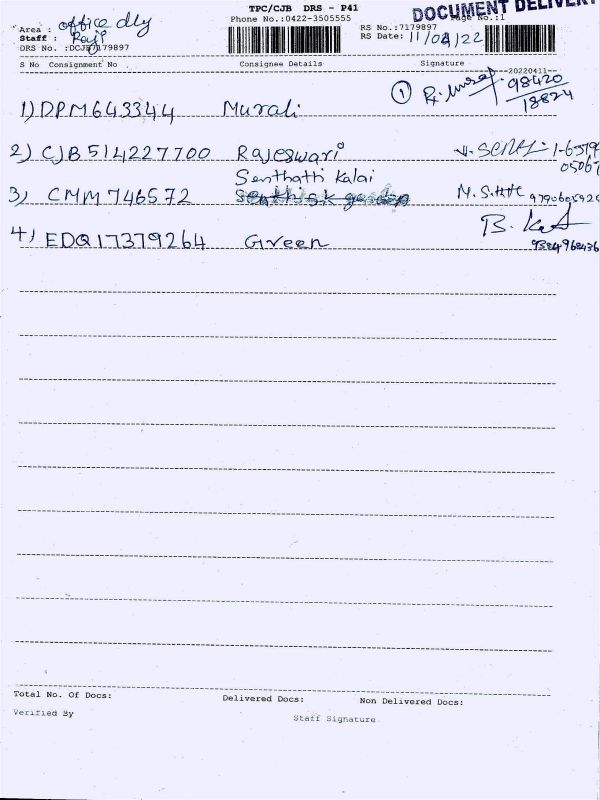 TPC/CJB DRS - P41
DOCUMENT DELIVERY
Phone No.:0422-3505555
Page No.:1
Area : office dly
RS No.:7179897
Staff : Raji
RS Date: 11/04/22
DRS No. :DCJB7179897
S No Consignment No Consignee Details Signature
--20220411--
1) DPM643344 Murali ① 98420 18824
2) CJB514227700 Rajeswari
Senthatti Kalai
3) CMM746572
4) EDQ17379264 Green B.
Total No. Of Docs: Delivered Docs: Non Delivered Docs:
Verified By Staff Signature